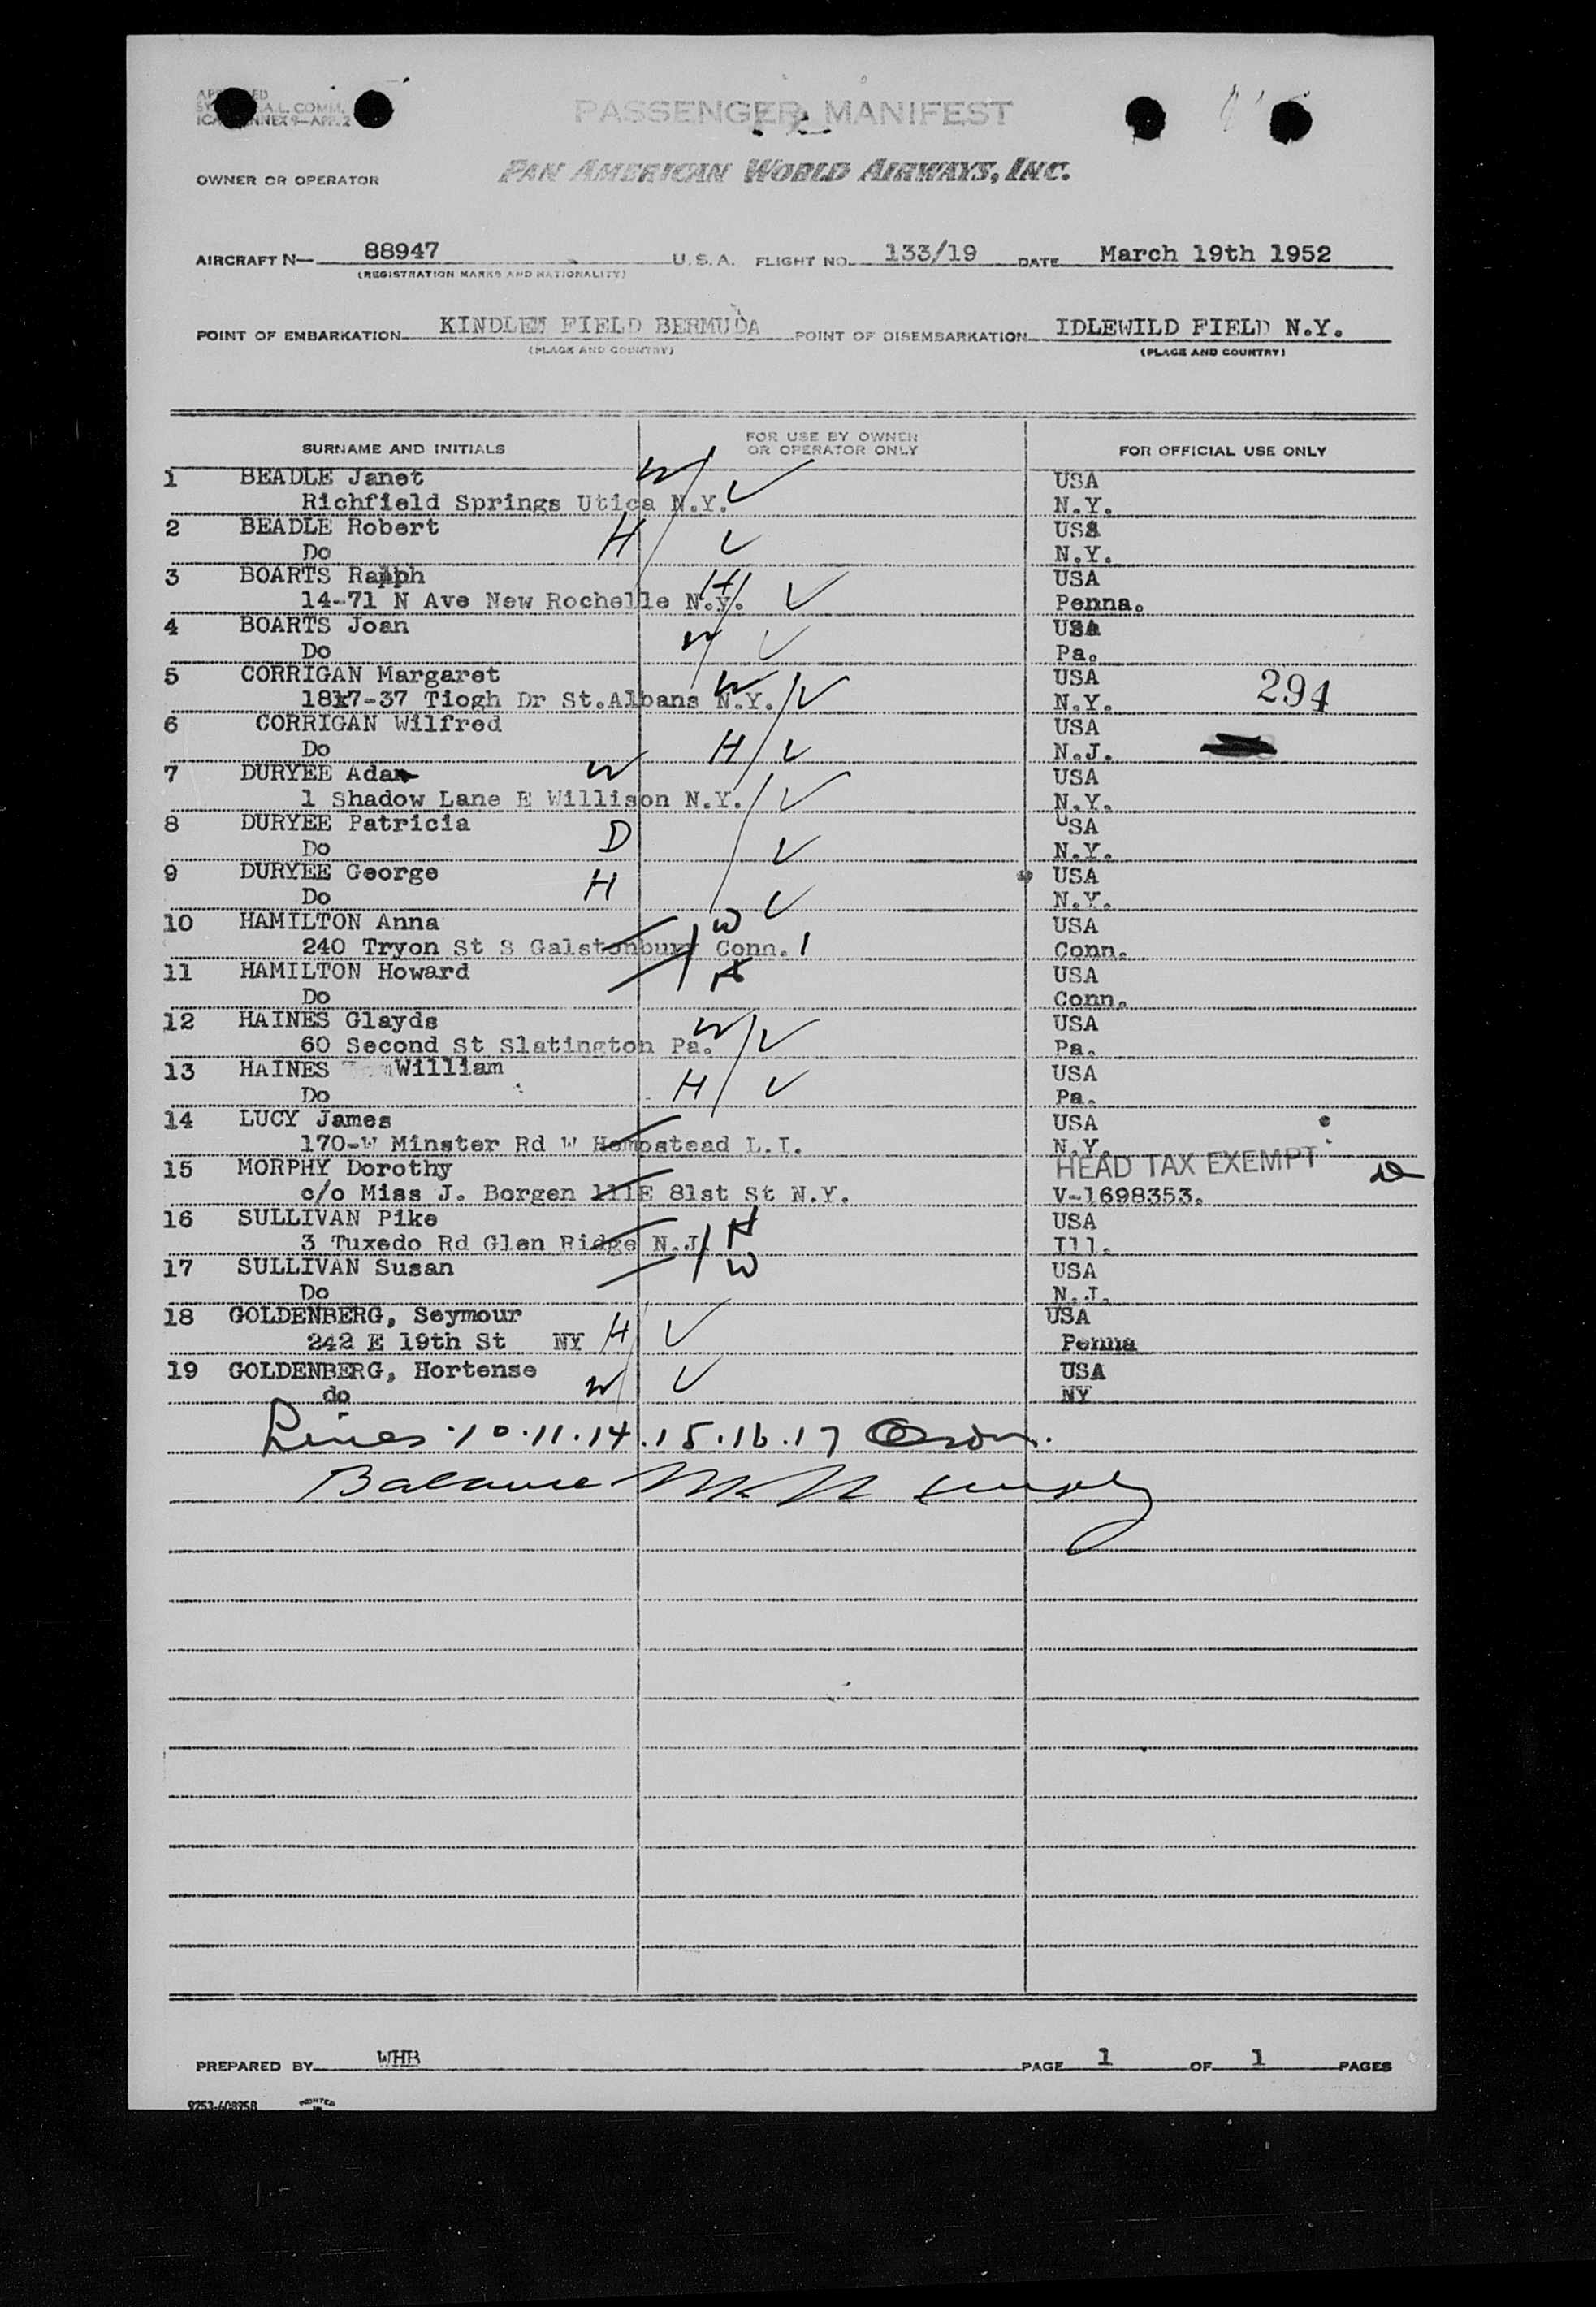 PASSENGER MANIFEST
PAN AMERICAN WORLD AIRWAYS, INC.
OWNER OR OPERATOR
AIRCRAFT N— 88947 U.S.A. FLIGHT NO. 133/19 DATE March 19th 1952
(REGISTRATION MARKS AND NATIONALITY)
POINT OF EMBARKATION KINDLEM FIELD BERMUDA POINT OF DISEMBARKATION IDLEWILD FIELD N.Y.
(PLACE AND COUNTRY) (PLACE AND COUNTRY)
SURNAME AND INITIALS FOR USE BY OWNER OR OPERATOR ONLY FOR OFFICIAL USE ONLY
1 BEADLE Janet W USA
Richfield Springs Utica N.Y. N.Y.
2 BEADLE Robert H USA
Do N.Y.
3 BOARTS Ralph H USA
14-71 N Ave New Rochelle N.Y. Penna.
4 BOARTS Joan W USA
Do Pa.
5 CORRIGAN Margaret W USA
1817-37 Tiogh Dr St.Albans N.Y. N.Y. 294
6 CORRIGAN Wilfred USA
Do H N.J.
7 DURYEE Ada W USA
1 Shadow Lane E Willison N.Y. N.Y.
8 DURYEE Patricia D USA
Do N.Y.
9 DURYEE George H USA
Do N.Y.
10 HAMILTON Anna W USA
240 Tryon St S Galstonbury Conn. Conn.
11 HAMILTON Howard H USA
Do Conn.
12 HAINES Glayds W USA
60 Second St Slatington Pa. Pa.
13 HAINES William USA
Do H Pa.
14 LUCY James USA
170-W Minster Rd W Hempstead L.I. N.Y.
15 MORPHY Dorothy HEAD TAX EXEMPT
c/o Miss J. Borgen 111E 81st St N.Y. V-1698353.
16 SULLIVAN Pike H USA
3 Tuxedo Rd Glen Ridge N.J. Ill.
17 SULLIVAN Susan W USA
Do N.J.
18 GOLDENBERG, Seymour USA
242 E 19th St NY H Penna
19 GOLDENBERG, Hortense W USA
do NY
Lines 10.11.14.15.16.17
Balance
PREPARED BY WHB PAGE 1 OF 1 PAGES
9253-60895B PRINTED